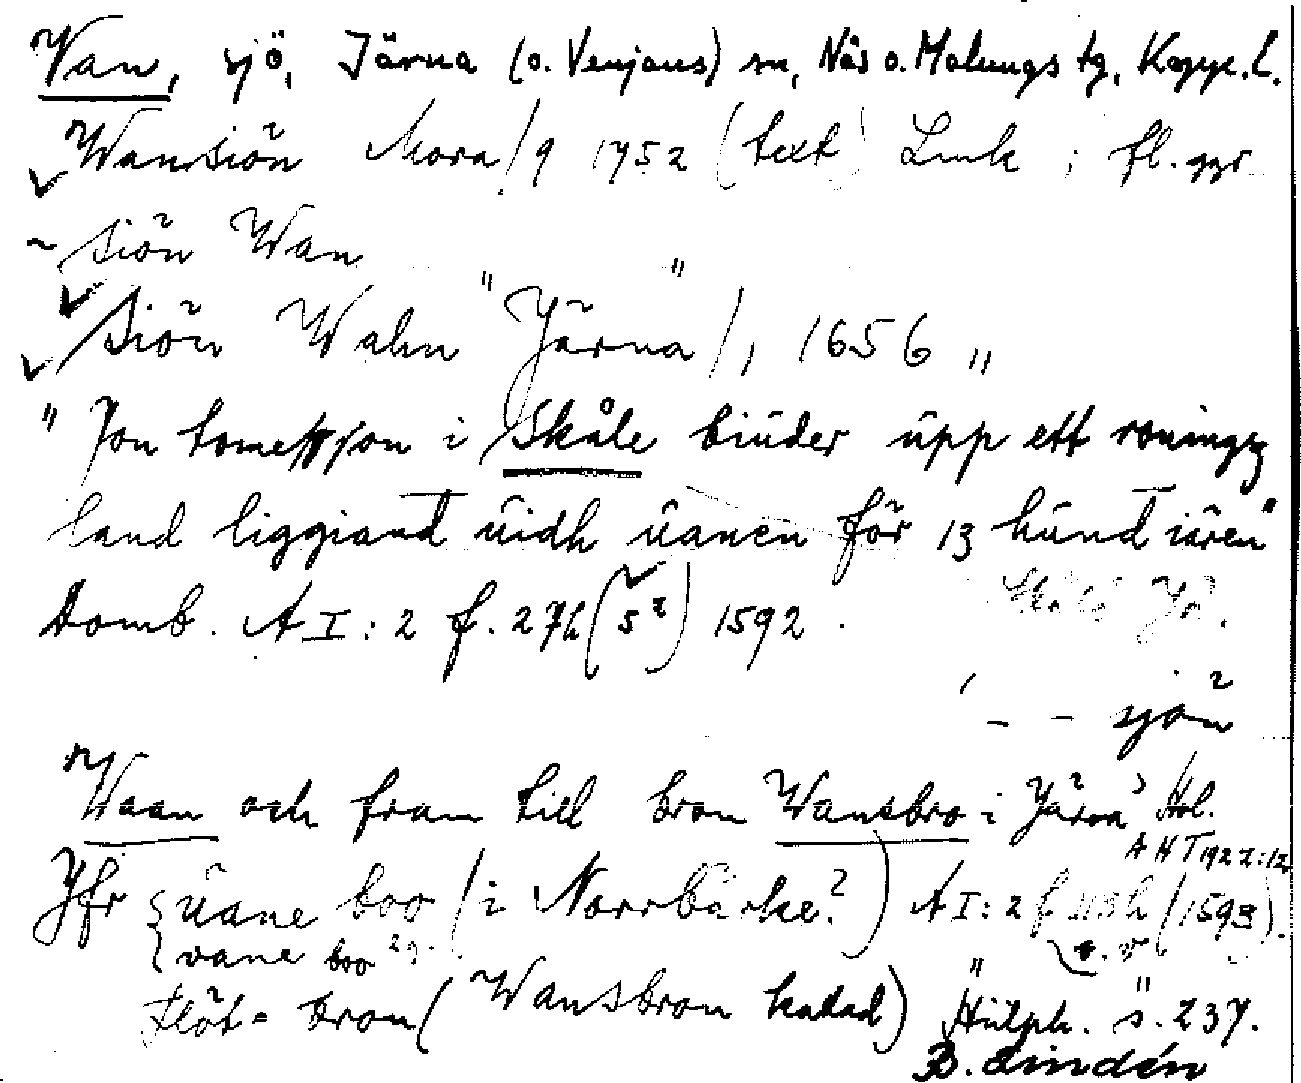 Van, sjö, Järna (o. Venjans) sn, Näs o. Malungs tg, Kopp. l.
Wansiön Mora/9 1752 (text) Link ; fl. ggr
~ siön Wan
siön Wahn "Järna"/, 1656 "
" Jon tomesson i Skåle biuder upp ett
land liggiand uidh uanen för 13 hund iären"
Domb. A I : 2 f. 27h (5ᵛ) 1592.
- - sjön
Waan och fram till bron Wansbro i Järna Hol.
A H T 1922:12
Jfr { uane boo (i Norrbärke?) A I : 2 f 113h (1593).
{ vane boo 2 g.
Flöt- bron (Wansbron kallad) Hülph. s. 237.
B. Lindén